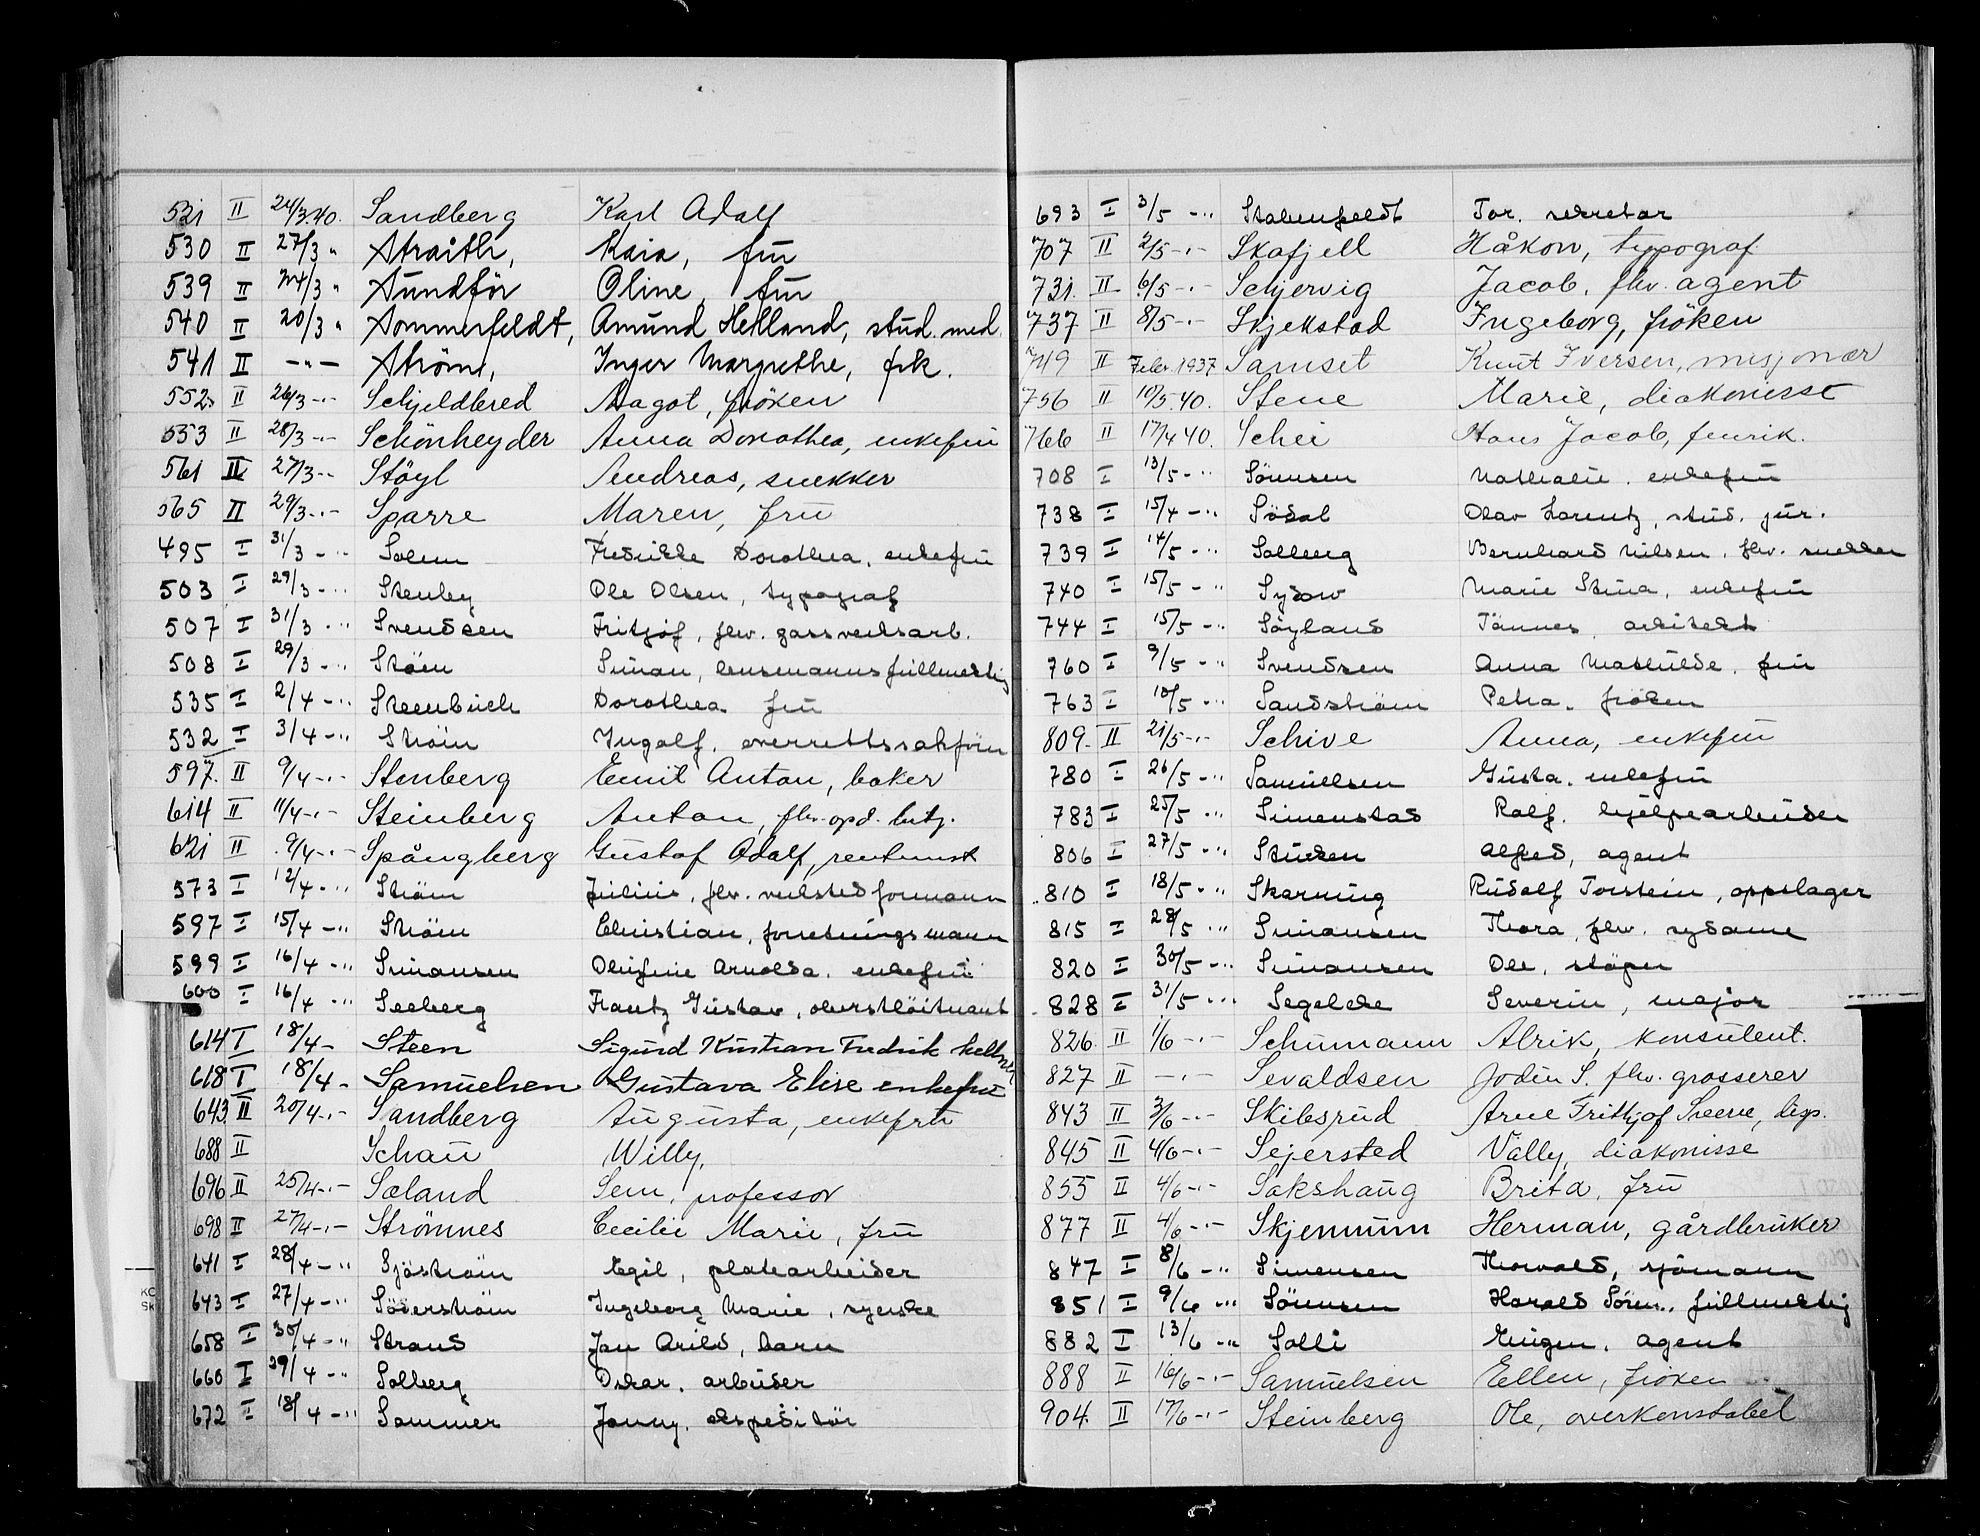 521 II 24/3.40. Sandberg Karl Adolf
530 II 27/3 " Straith, Kaia, fru
539 II 24/3 " Sundför Oline, fru
540 II 20/3 " Sommerfeldt, Amund Helland, stud. med.
541 II -"- Ström, Inger Margrethe, frk.
552. II 26/3 -"- Schjeldbred Aagot, fröken
553 II 28/3 -"- Schönheyder Anna Dorothea, enkefru
561 II 27/3 -"- Stöyl Andreas, snekker
565 II 29/3 -"- Sparre Maren, fru
495 I 31/3 -"- Solem Fredrikke Dorothea, enkefru
503 I 29/3 -"- Stenby Ole Olsen, typograf
507 I 31/3 -"- Svendsen Fritjof, fhv. gassverksarb.
508 I 29/3 -"- Ström Simon, lensmannsfullmektig
535 I 2/4 -"- Steenbuch Dorothea fru
532 I 3/4 -"- Ström Ingolf, overrettssakförer
597. II 9/4 -"- Stenberg Emil Anton, baker
614 II 11/4 -"- Steinberg Anton, fhv. opd. betj.
621 II 9/4 -"- Spångberg Gustaf Adolf, rentenist
573 I 12/4 -"- Ström Julius, fhv. verkstedformann
597 I 15/4 -"- Ström Christian, forretningsmann
599 I 16/4 -"- Simonsen Olufine Arnolda, enkefru
600 I 16/4 -"- Seeberg Frantz Gustav, oberstlöitnant
614 I 18/4 - Steen Sigurd Kristian Fredrik kellner
618 I 18/4 - Samuelsen Gustava Elise enkefru
643 II 20/4 -"- Sandberg Augusta, enkefru
688 II Schau Willy,
696 II 25/4 -"- Sæland Sem, professor
698 II 27/4 -"- Strömnes Cecilie Marie, fru
641 I 28/4 -"- Sjöström Egil, platearbeider
643 I 27/4 -"- Söderström Ingeborg Marie, syerske
658 I 30/4 -"- Strand Jan Arild, barn
660 I 29/4 -"- Solberg Oskar, arbeider
672 I 18/4 -"- Sommer Jonny, ekspeditör
693 I 3/5 -"- Stabenfeldt Tor, sekretær
707 II 2/5 -"- Skafjell Håkon, typograf
731. II 6/5 -"- Schjervig Jacob, fhv. agent
737 II 8/5 -"- Skjekstad Ingeborg, fröken
749 II Febr. 1937 Samset Knut Iversen, misjonær
756 II 10/5.40. Stene Marie, diakonisse
766 II 17/4 40. Schei Hans Jacob, fenrik.
708 I 13/5 -"- Sörensen Nathalie, enkefru
738 I 15/4 -"- Södal Olav Lorentz, stud. jur.
739 I 14/5 -"- Solberg Bernhard Nilsen, fhv. snekker
740 I 15/5 -"- Sydow Marie Stina, enkefru
744 I 15/5 -"- Söyland Tönnes, arkitekt
760 I 9/5 -"- Svendsen Anna Mathilde, fru
763 I 10/5 -"- Sandström Petra, fröken
809. II 21/5 -"- Schive Anna, enkefru
780 I 26/5 -"- Samuelsen Gusta, enkefru
783 I 25/5 -"- Simenstad Rolf, hjelpearbeider
806 I 27/5 -"- Stucken Alfred, agent
810 I 18/5 -"- Skarning Rudolf Torstein, oppslager
815 I 28/5 -"- Simonsen Thora, fhv. sydame
820 I 30/5 -"- Simonsen Ole, stöper
828 I 31/5 -"- Segelcke Severin, major
826. II 1/6 -"- Schumann Alrik, konsulent.
827 II -"- Sevaldsen Jodin S. fhv. grosserer
843 II 3/6 -"- Skibsrud Arne Frithjof Sverre, disp.
845 II 4/6 -"- Sejersted Vally, diakonisse
855 II 4/6 -"- Sakshaug Brita, fru
877 II 4/6 -"- Skjennum Herman, gårdbruker
847 I 8/6 -"- Simensen Thorvald, sjömann
851 I 9/6 -"- Sörensen Harald Sören, fullmektig
882 I 13/6 -"- Solli Eugen, agent
888 II 16/6 -"- Samuelsen Ellen, fröken
904. II 17/6 -"- Steinberg Ole, overkonstabel